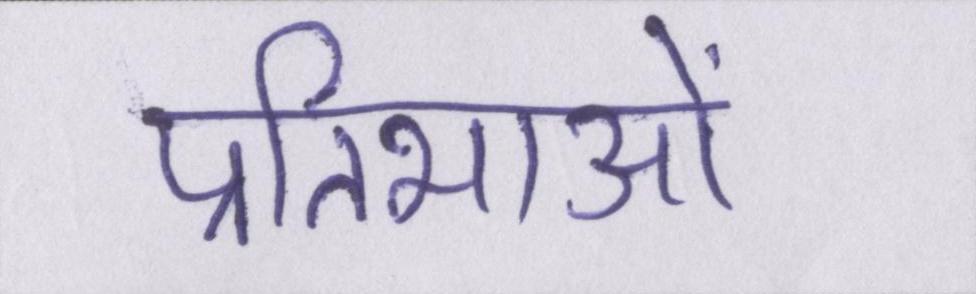 प्रतिभाओं